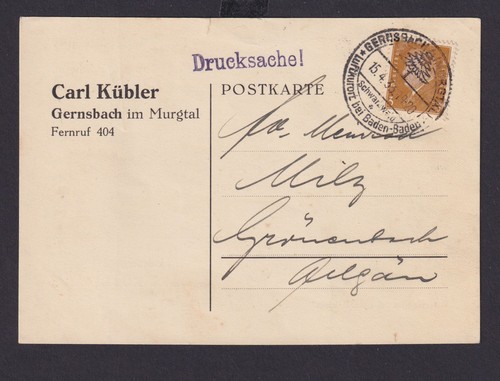 Drucksache!
Carl Kübler
Gernsbach im Murgtal
Fernruf 404
POSTKARTE
GERNSBACH
15.4.
Luftkurort bei Baden-Baden
Milz
Grönenbach